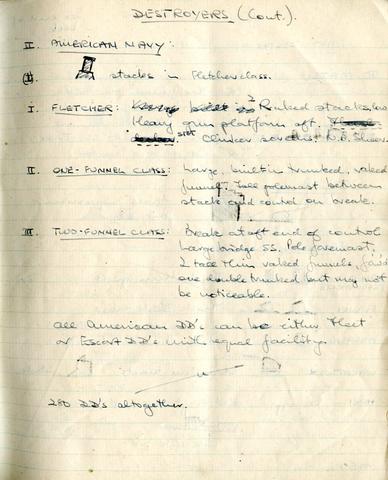 DESTROYERS (Cont.).
II. AMERICAN NAVY:
stacks in Fletcher class.
I FLETCHER: 2 Raked stacks, no
Heavy gun platform aft.
Clinker screens. N.B. Sheer.
II. ONE-FUNNEL CLASS: Large, built-in trunked, raked
funnel, tall foremast between
stack and control on break.
III TWO-FUNNEL CLASS: Break at aft end of control
Large bridge SS. Pole foremast,
2 tall thin raked funnels,
one double trunked but may not
be noticeable.
All American DD's can be either Fleet
or Escort DD's with equal facility.
280 DD's altogether.